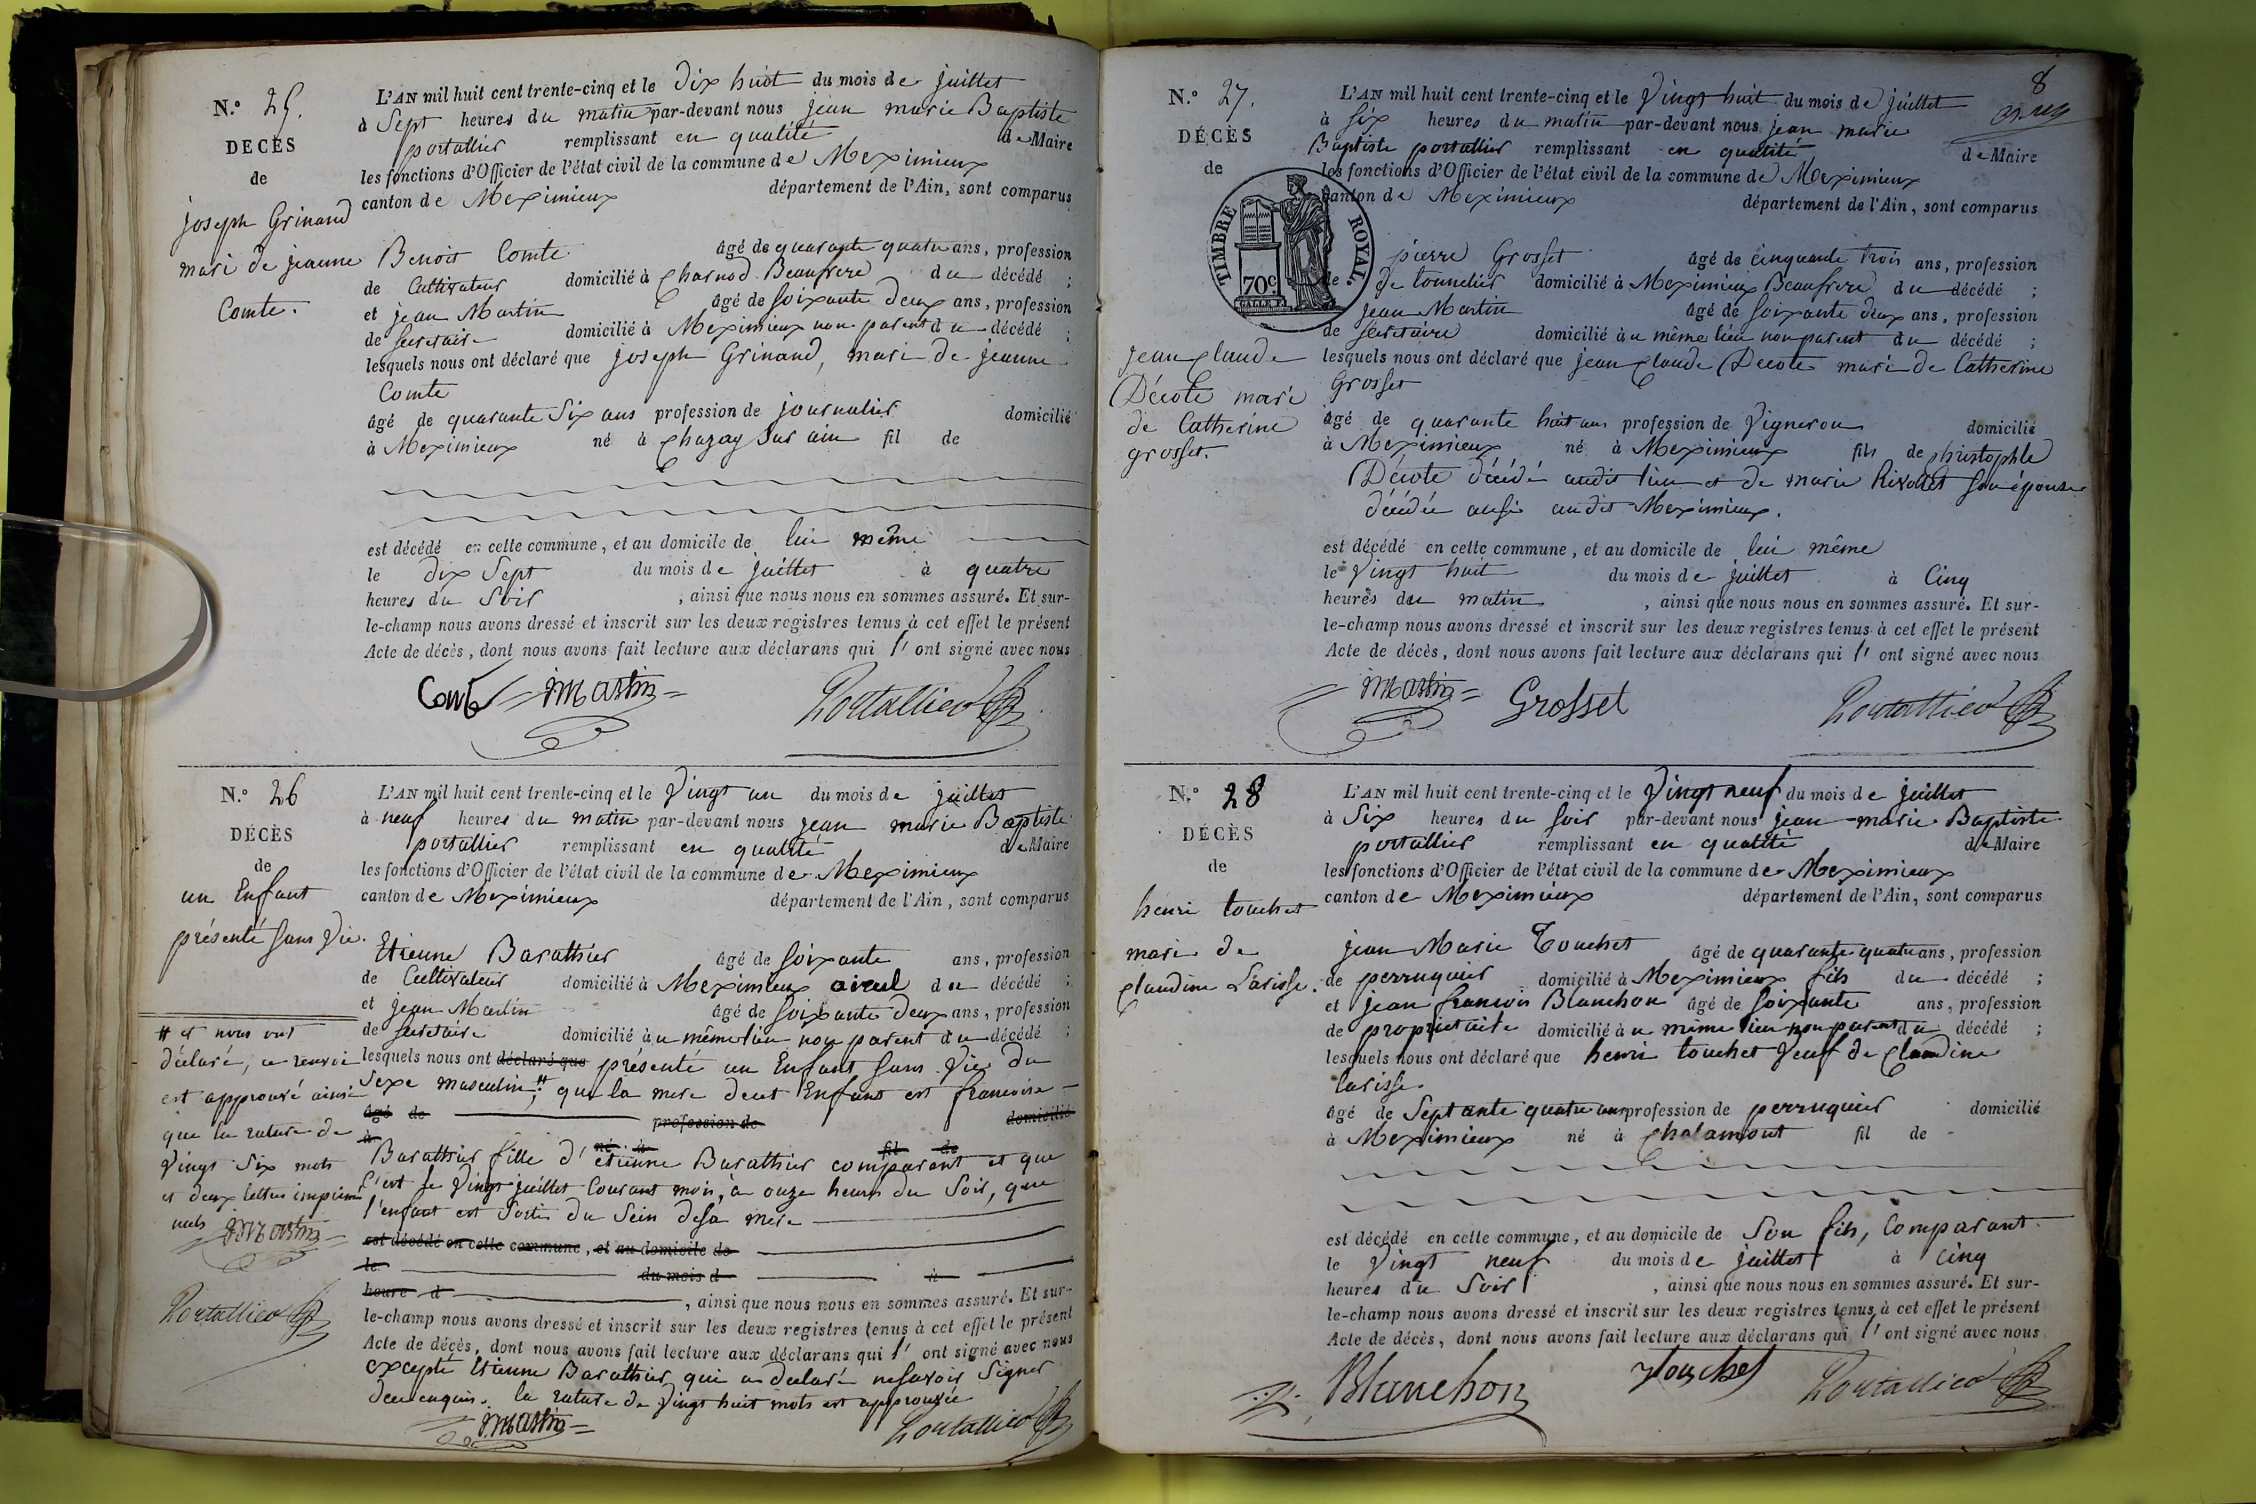 N.º 25.
DECÈS
de
joseph Grinand
mari de jeanne
Comte.
L'AN mil huit cent trente-cinq et le dix huit du mois de juillet
à Sept heures du matin par-devant nous jean marie Baptiste
portallier remplissant en qualité de Maire
les fonctions d'Officier de l'état civil de la commune de Meximieux
canton de Meximieux département de l'Ain, sont comparus
Benoit Comte âgé de quarante quatre ans, profession
de Cultivateur domicilié à Charnod Beaufrere du décédé ;
et jean Martin âgé de soixante deux ans, profession
de secretaire domicilié à Meximieux non parent du décédé ;
lesquels nous ont déclaré que joseph Grinand, mari de jeanne
Comte
âgé de quarante Six ans profession de journalier domicilié
à Meximieux né à Chazay sur ain fil de
est décédé en cette commune, et au domicile de lui même
le dix Sept du mois de juillet à quatre
heures du Soir , ainsi que nous nous en sommes assuré. Et sur-
le-champ nous avons dressé et inscrit sur les deux registres tenus à cet effet le présent
Acte de décès, dont nous avons fait lecture aux déclarans qui l' ont signé avec nous
Comte Martin Portallier
N.º 26
DÉCÈS
de
un Enfant
présenté sans Vie.
# et nous ont
déclaré, ce renvoi
est approuvé ainsi
que la rature de
Vingt Six mots
et deux lettres imprimé
nuls Martin
Portallier
L'AN mil huit cent trente-cinq et le Vingt un du mois de juillet
à neuf heures du matin par-devant nous jean marie Baptiste
portallier remplissant en qualité de Maire
les fonctions d'Officier de l'état civil de la commune de Meximieux
canton de Meximieux département de l'Ain, sont comparus
Etienne Barathier âgé de soixante ans, profession
de Cultivateur domicilié à Meximieux aieul du décédé ;
et jean Martin âgé de soixante deux ans, profession
de secretaire domicilié à u même lieu non parent du décédé ;
lesquels nous ont déclaré que présenté un Enfant sans Vie du
Sexe masculin,# que la mere dud Enfant est francoise
âgé de profession de domicilié
à né à fil de
Barathier fille d'etienne Barathier comparant et que
C'est le Vingt juillet Courant mois, à onze heures du Soir, que
l'enfant est Sorti du Sein de sa mere
est décédé en cette commune, et au domicile de
le du mois d à
heure d , ainsi que nous nous en sommes assuré. Et sur-
le-champ nous avons dressé et inscrit sur les deux registres tenus à cet effet le présent
Acte de décès, dont nous avons fait lecture aux déclarans qui l' ont signé avec nous
excepté Etienne Barathier qui a déclaré ne savoir Signer
de ce enquis. la rature de Vingt huit mots est approuvée
Martin Portallier
8
N.º 27.
DÉCÈS
de
jean Claude
Décote mari
de Catherine
grosset.
TIMBRE ROYAL.
70 C
L'AN mil huit cent trente-cinq et le Vingt huit du mois de juillet
à six heures du matin par-devant nous jean marie
Baptiste portallier remplissant en qualité de Maire
les fonctions d'Officier de l'état civil de la commune de Meximieux
canton de Meximieux département de l'Ain, sont comparus
pierre Grosset âgé de cinquante trois ans, profession
de de tonnelier domicilié à Meximieux Beaufrere du décédé ;
jean Martin âgé de soixante deux ans, profession
de secretaire domicilié à u même lieu non parent du décédé ;
lesquels nous ont déclaré que jean Claude Decote mari de Catherine
Grosset
âgé de quarante huit ans profession de Vigneron domicilié
à Meximieux né à Meximieux fils de christophle
Décote décédé audit lieu et de marie Rivollet son épouse
décédée aussi audit Meximieux.
est décédé en cette commune, et au domicile de lui même
le Vingt huit du mois de juillet à Cinq
heures du matin , ainsi que nous nous en sommes assuré. Et sur-
le-champ nous avons dressé et inscrit sur les deux registres tenus à cet effet le présent
Acte de décès, dont nous avons fait lecture aux déclarans qui l' ont signé avec nous
Martin Grosset Portallier
N.º 28
DÉCÈS
de
henri touchet
mari de
Claudine Larisse.
L'AN mil huit cent trente-cinq et le Vingt neuf du mois de juillet
à Six heures du soir par-devant nous jean marie Baptiste
portallier remplissant en qualité de Maire
les fonctions d'Officier de l'état civil de la commune de Meximieux
canton de Meximieux département de l'Ain, sont comparus
jean Marie Touchet âgé de quarante quatre ans, profession
de perruquier domicilié à Meximieux fils du décédé ;
et jean francois Blanchon âgé de soixante ans, profession
de propriétaire domicilié à u même lieu non parent du décédé ;
lesquels nous ont déclaré que henri touchet Veuf de Claudine
larisse
âgé de Septante quatre ans profession de perruquier domicilié
à Meximieux né à Chalamont fil de
est décédé en cette commune, et au domicile de Son fils, Comparant
le Vingt neuf du mois de juillet à cinq
heures du Soir , ainsi que nous nous en sommes assuré. Et sur-
le-champ nous avons dressé et inscrit sur les deux registres tenus à cet effet le présent
Acte de décès, dont nous avons fait lecture aux déclarans qui l' ont signé avec nous
Blanchon Touchet Portallier